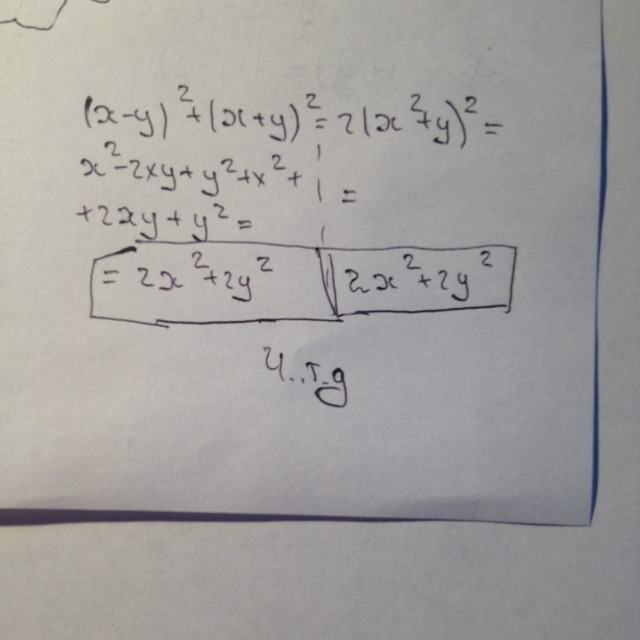 (x-y)²+(x+y)²=2(x²+y)²=
x²-2xy+y²+x²+
+2xy+y²=
=
=2x²+2y² 2x²+2y²
ч.т.д